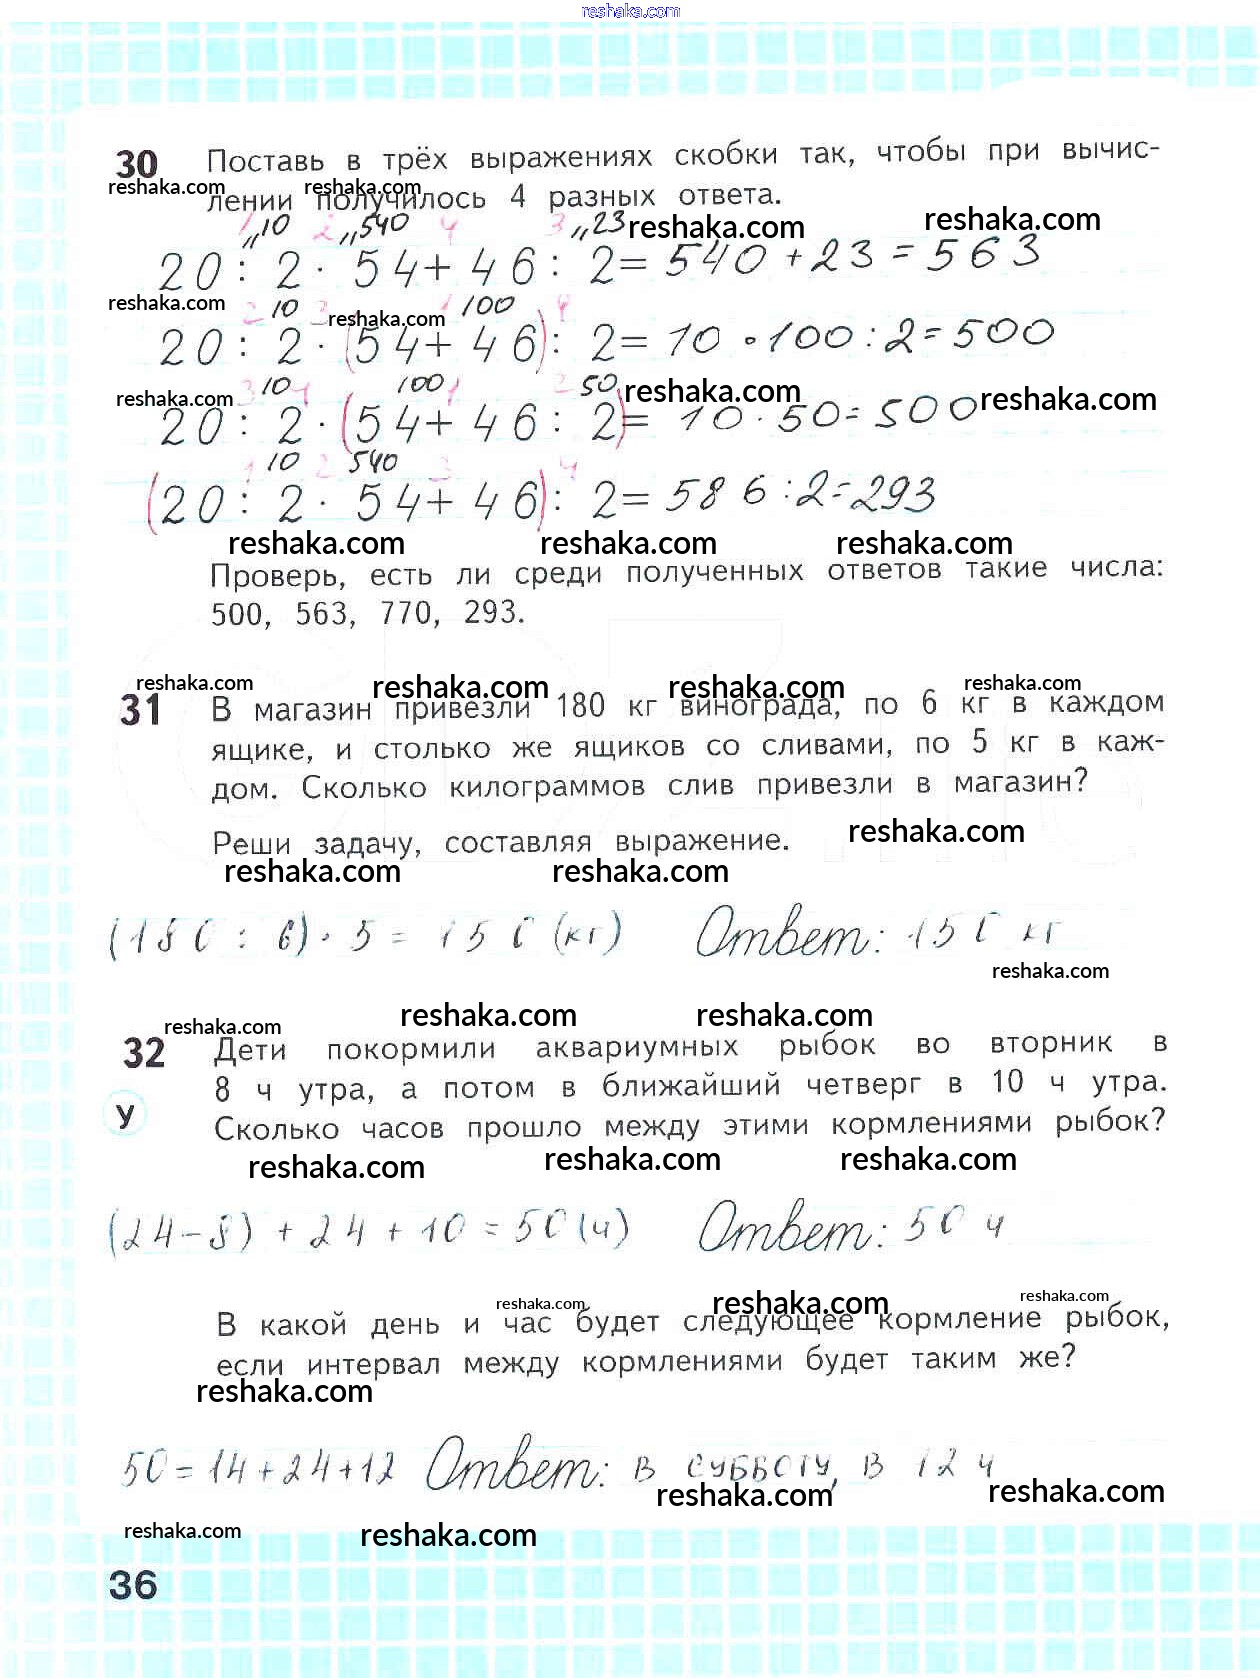 reshaka.com
30 Поставь в трёх выражениях скобки так, чтобы при вычис-
reshaka.com reshaka.com
лении получилось 4 разных ответа.
1 „10 2 „540 4 3 „23 reshaka.com reshaka.com
20 : 2 · 54 + 46 : 2 = 540 + 23 = 563
reshaka.com 2 10 3 reshaka.com 1 100 4
20 : 2 · (54 + 46) : 2 = 10 · 100 : 2 = 500
reshaka.com 3 10 4 100 1 2 50 reshaka.com reshaka.com
20 : 2 · (54 + 46 : 2) = 10 · 50 = 500
1 10 2 540 3 4
(20 : 2 · 54 + 46) : 2 = 586 : 2 = 293
reshaka.com reshaka.com reshaka.com
Проверь, есть ли среди полученных ответов такие числа:
500, 563, 770, 293.
reshaka.com reshaka.com reshaka.com reshaka.com
31 В магазин привезли 180 кг винограда, по 6 кг в каждом
ящике, и столько же ящиков со сливами, по 5 кг в каж-
дом. Сколько килограммов слив привезли в магазин?
Реши задачу, составляя выражение. reshaka.com
reshaka.com reshaka.com
(180 : 6) · 5 = 150 (кг) Ответ: 150 кг
reshaka.com
reshaka.com reshaka.com reshaka.com
32 Дети покормили аквариумных рыбок во вторник в
8 ч утра, а потом в ближайший четверг в 10 ч утра.
У Сколько часов прошло между этими кормлениями рыбок?
reshaka.com reshaka.com reshaka.com
(24 – 8) + 24 + 10 = 50 (ч) Ответ: 50 ч
reshaka.com reshaka.com reshaka.com
В какой день и час будет следующее кормление рыбок,
если интервал между кормлениями будет таким же?
reshaka.com
50 = 14 + 24 + 12 Ответ: в субботу, в 12 ч
reshaka.com reshaka.com
reshaka.com reshaka.com
36